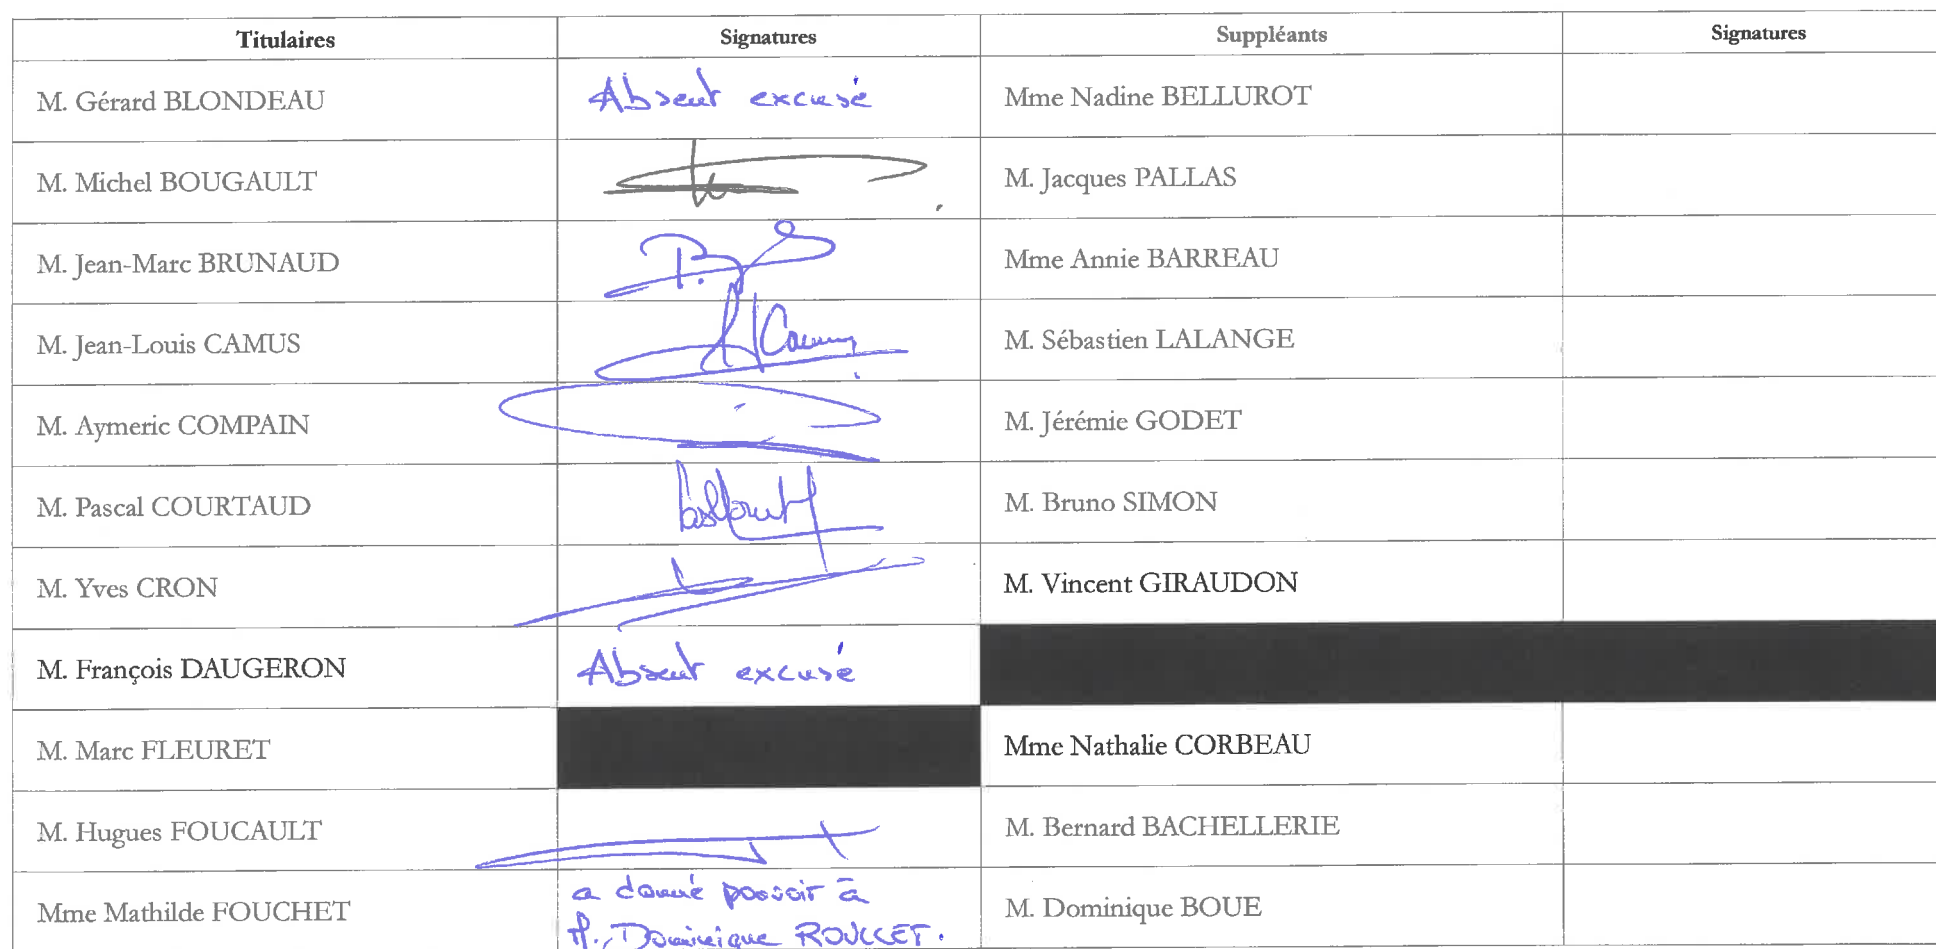 Titulaires Signatures Suppléants Signatures
M. Gérard BLONDEAU Absent excusé Mme Nadine BELLUROT
M. Michel BOUGAULT M. Jacques PALLAS
M. Jean-Marc BRUNAUD Mme Annie BARREAU
M. Jean-Louis CAMUS M. Sébastien LALANGE
M. Aymeric COMPAIN M. Jérémie GODET
M. Pascal COURTAUD M. Bruno SIMON
M. Yves CRON M. Vincent GIRAUDON
M. François DAUGERON Absent excusé
M. Marc FLEURET Mme Nathalie CORBEAU
M. Hugues FOUCAULT M. Bernard BACHELLERIE
Mme Mathilde FOUCHET a donné pouvoir à M. Dominique BOUE
M. Dominique ROULLET.